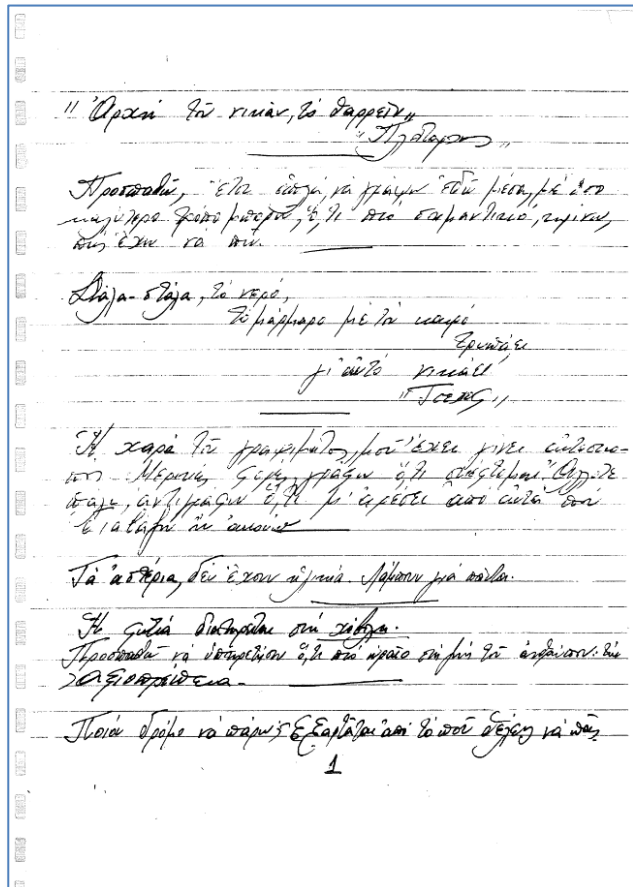 "Ἀρχή τοῦ νικᾶν, τό θαρρεῖν"
"Πλούταρχος"
Προσπαθῶ, ἔτσι ἁπλά, νά γράψω ἐδῶ μέσα, μέ ὅσο
καλύτερο τρόπο μπορῶ, ὅ,τι πιό σημαντικό,
πώς ἔχω νά πῶ.
Στάλα-στάλα, τό νερό,
τό μάρμαρο μέ τόν καιρό
τρυπάει
γι' αὐτό νικάει
Ἡ χαρά τοῦ γραψίματος, μοῦ ἔχει γίνει
Μερικές φορές γράφω ὅ,τι σκέφτομαι. Ἄλλοτε
πάλι, ἀντιγράφω ὅ,τι μ' ἀρέσει ἀπό αὐτά πού
διαβάζω ἤ ἀκούω
Τά ἀστέρια, δέν ἔχουν ἡλικία. Λάμπουν γιά πάντα.
Ἡ φωτιά διατηρεῖται στή χόβολη.
Προσπαθῶ νά ὑπηρετήσω ὅ,τι πιό ὡραῖο στή ζωή τοῦ ἀνθρώπου: τήν
Ἀξιοπρέπεια.
Ποιόν δρόμο νά πάρω; Ἐξαρτᾶται ἀπό τό ποῦ θέλεις νά πᾶς.
1